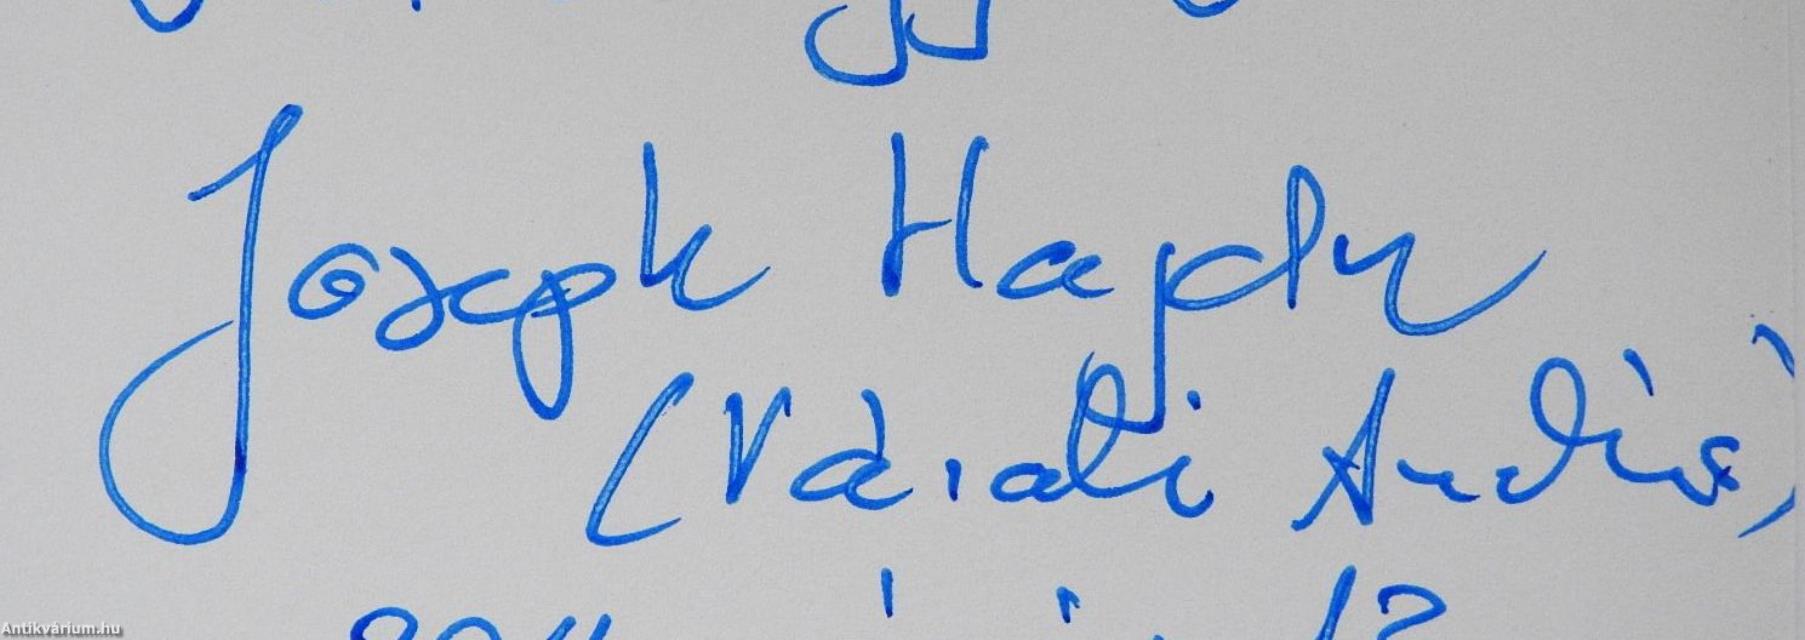 Joseph Haydn
(Várali András)
Antikvárium.hu